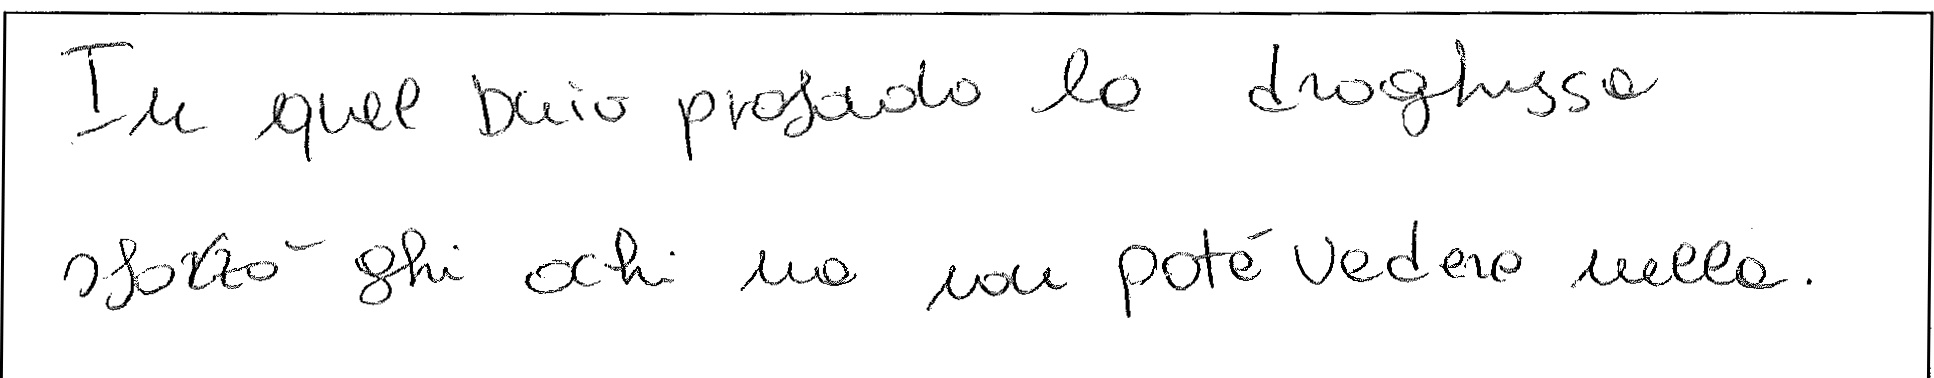 In quel buio profondo la droghussa
sforzò ghi ochi ma non poté vedere nulla.